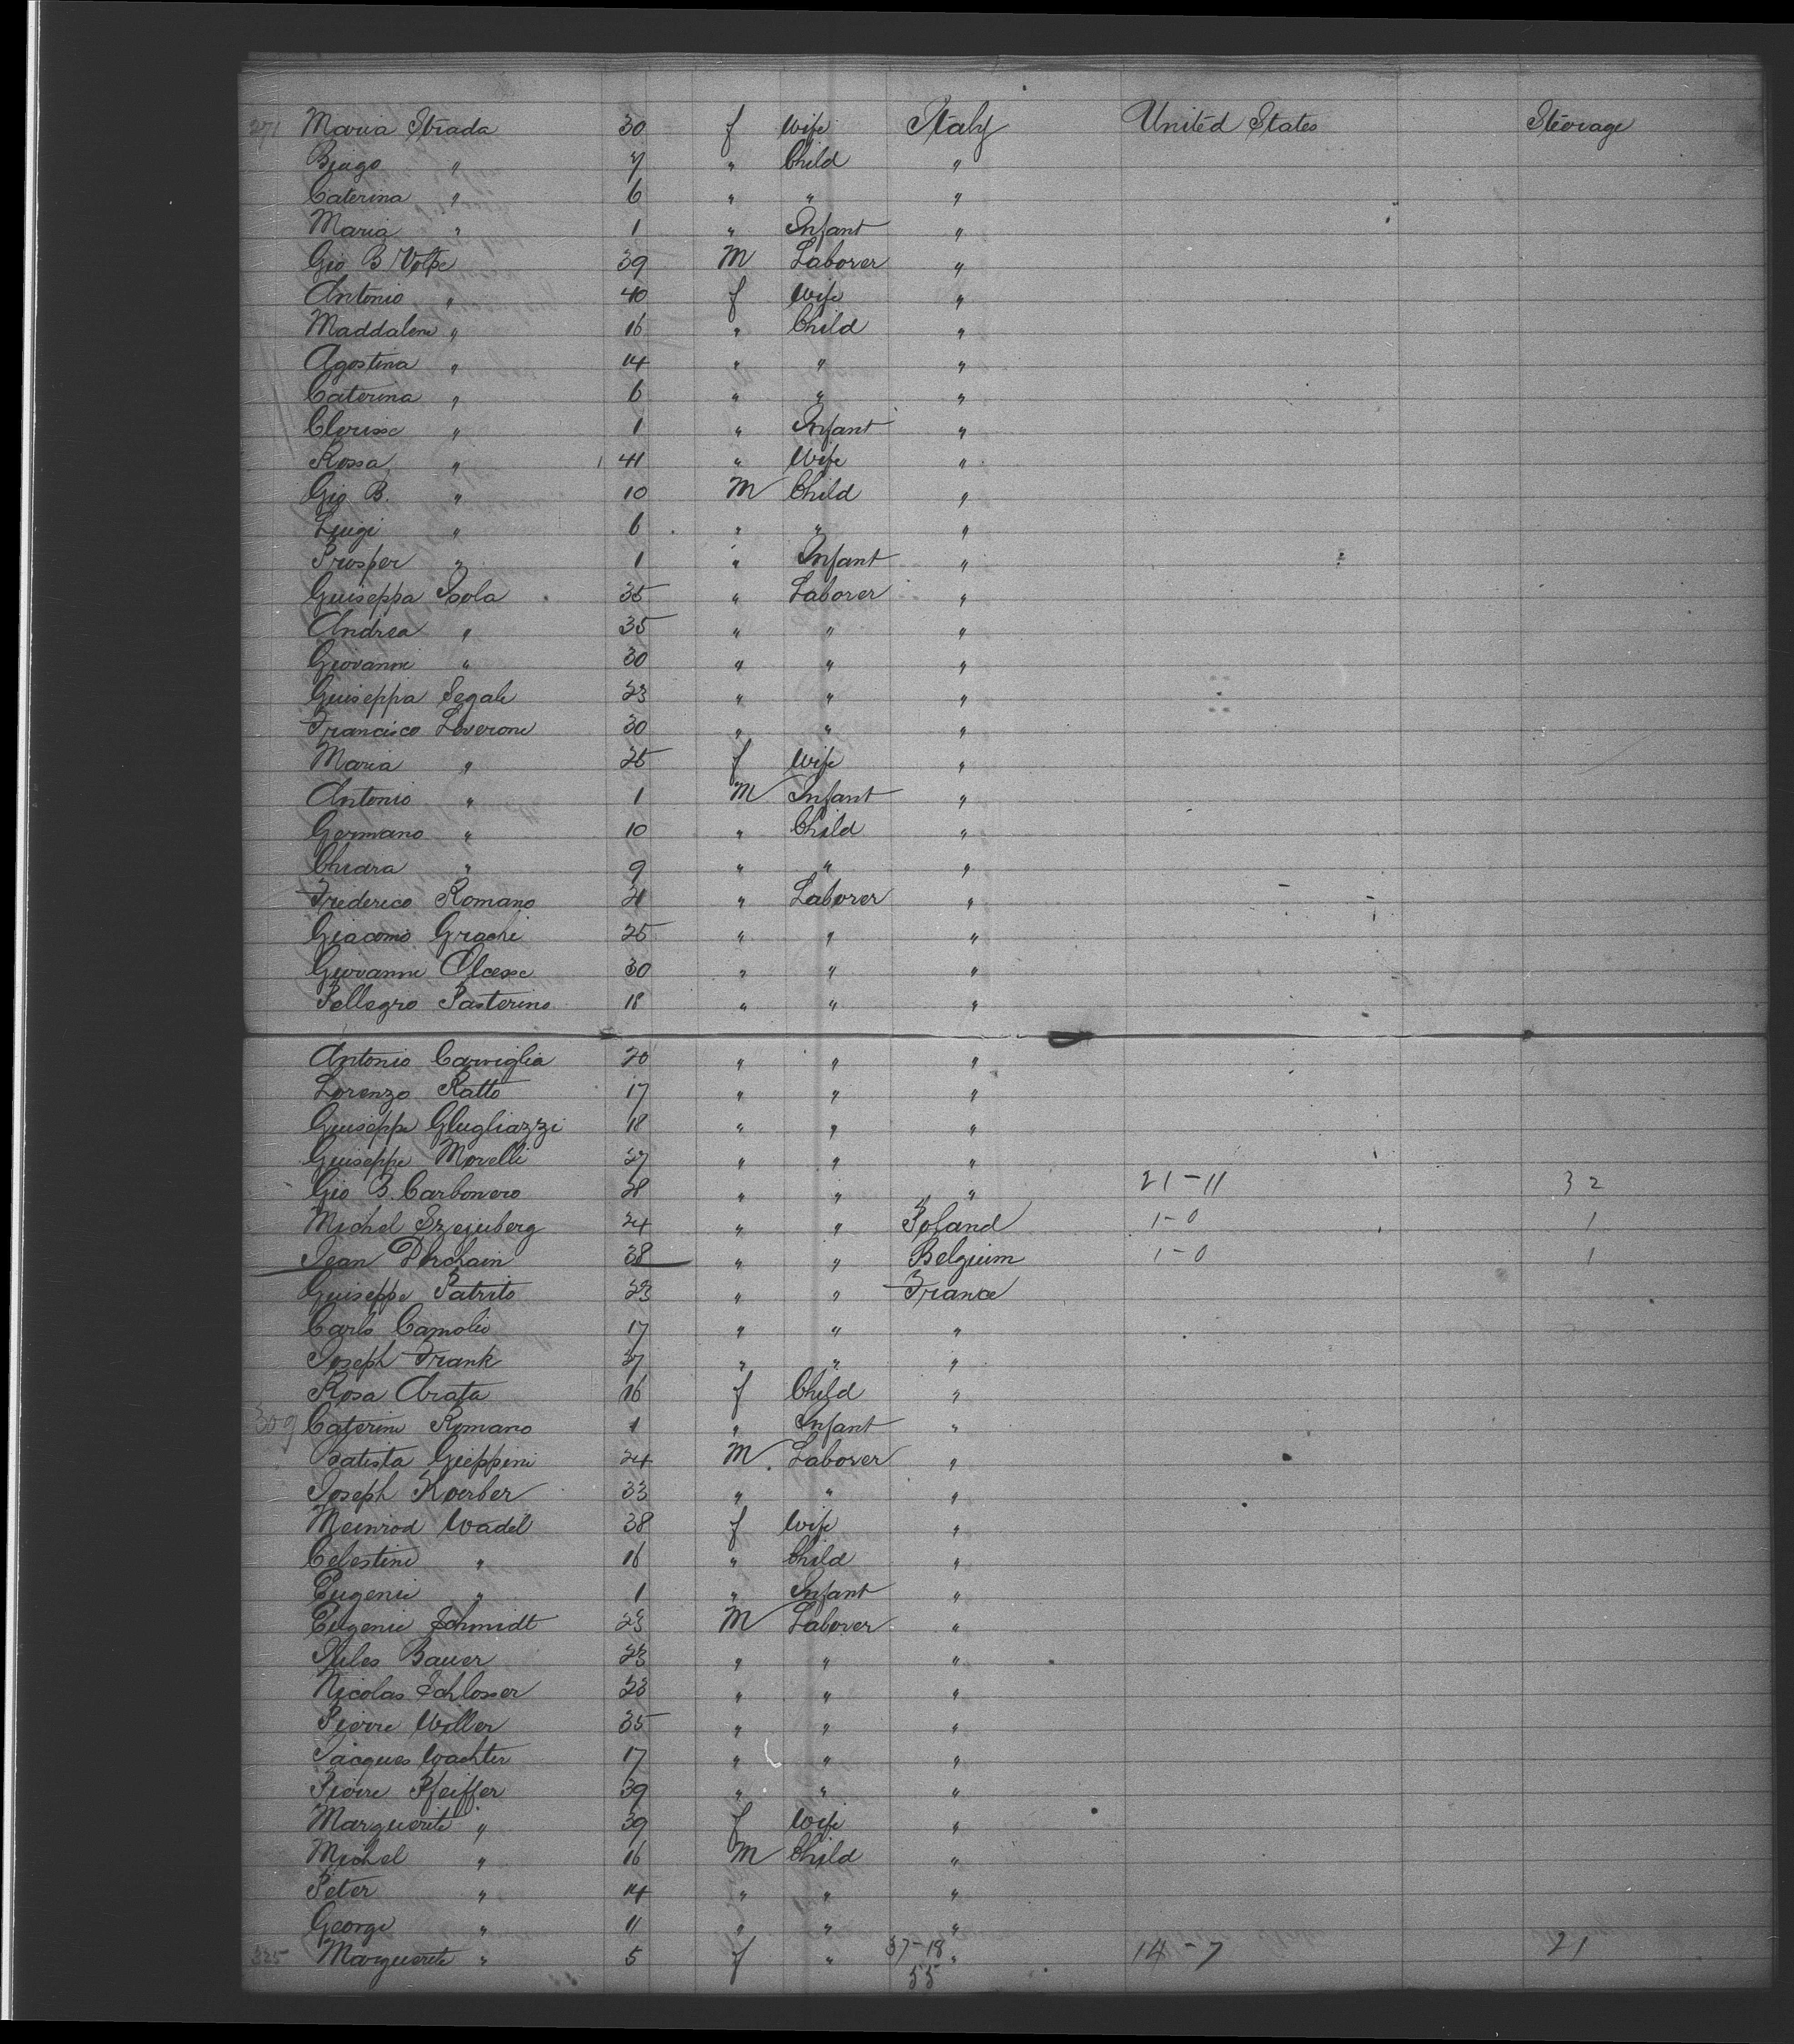 271 Maria Strada 30 f Wife Italy United States Steerage
Biago " 7 " Child "
Caterina " 6 " " "
Maria " 1 " Infant "
Gio B Volpe 39 M Laborer "
Antonio " 40 f Wife "
Maddalena " 16 " Child "
Agostina " 14 " " "
Caterina " 6 " " "
" 1 " Infant "
Rossa " 41 " Wife "
Gio B. " 10 M Child "
Luigi " 6 " " "
Prosper " 1 " Infant "
Guiseppa Isola 35 " Laborer "
Andrea " 35 " " "
Giovanni " 30 " " "
Guiseppa Segale 23 " " "
Francisco Leverone 30 " " "
Maria " 25 f Wife "
Antonio " 1 M Infant "
Germano " 10 " Child "
Chiara " 9 " " "
Frederico Romano 21 " Laborer "
Giacomo 25 " " "
Giovanni 30 " " "
Pellegro Pasterino 18 " " "
Antonio 20 " " "
Lorenzo Ratto 17 " " "
Guiseppe 18 " " "
Guiseppe Morelli 27 " " "
Gio B. Carbonero 28 " " " 21-11 32
Michel 24 " " Poland 1-0 1
Jean 38 " " Belgium 1-0 1
Guiseppe Patrito 23 " " France
Carlo Camolio 17 " " "
Joseph Frank 27 " " "
Rosa Arata 16 f Child "
309 Caterina Romano 1 " Infant "
Batista Gieppini 24 M Laborer "
Joseph Koerber 33 " " "
Meinrod Wadel 38 f Wife "
Celestine " 16 " Child "
Eugenie " 1 " Infant "
Eugenie Schmidt 23 M Laborer "
Jules Bauer 23 " " "
Nicolas Schlosser 23 " " "
Pierre Willer 35 " " "
Jacques Wachter 17 " " "
Pierre Pfeiffer 39 " " "
Marguerite " 39 f Wife "
Michel " 16 M Child "
Peter " 14 " " "
George " 11 " " "
325 Marguerite " 5 f " 37-18 " 14-7 21
55